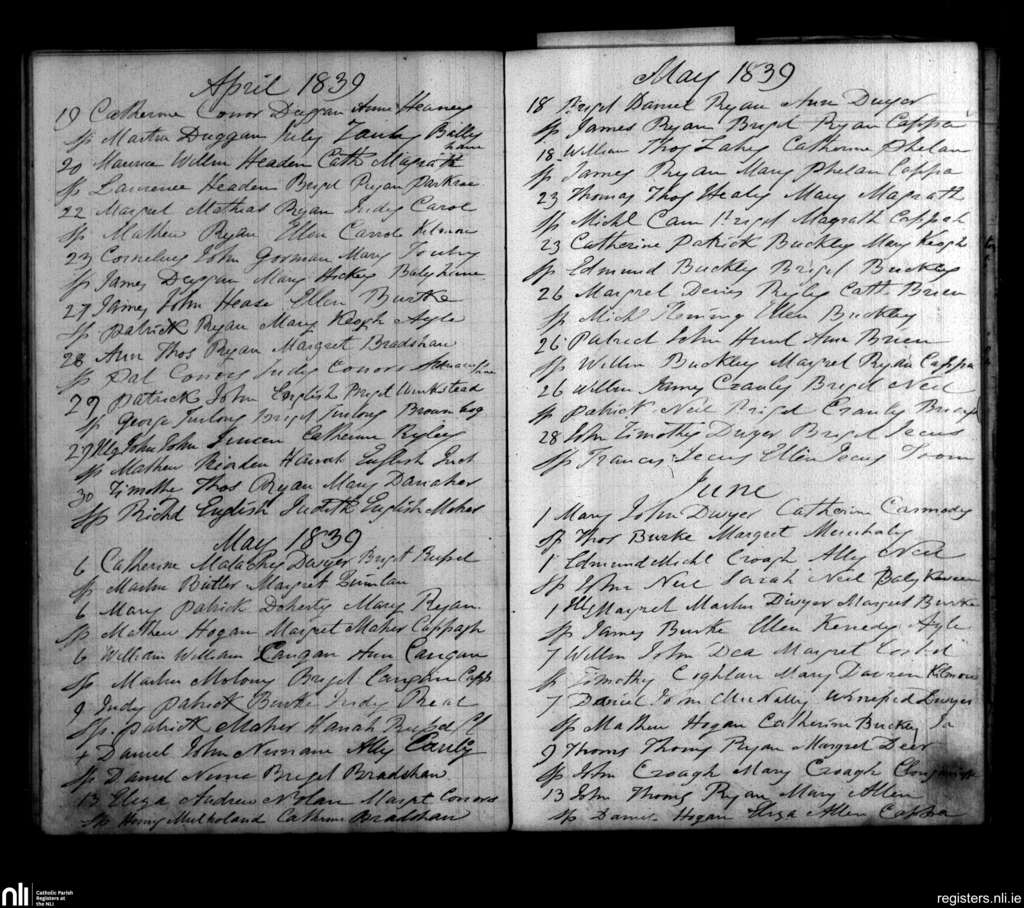 April 1839
19 Catherine Conor Duggan Anne Heaney
Sp Martin Duggan July Bally
hane
20 Maurice Willm Headen Cath Magrath
Sp Laurence Headen Briget Ryan Parkroe
22 Margret Mathias Ryan Judy Carol
Sp Mathew Ryan Ellen Carrol
23 Cornelius John Gorman Mary
Sp James Duggan Mary Hickey
27 James John Hease Ellen Burke
Sp Patrick Ryan Mary Keogh Ayle
28 Ann Thos Ryan Margret Bradshaw
Sp Pat Conors Judy Conors
29 Patrick John English Briget
Sp George Furlong Briget Furlong Brownbog
29 John John Catherine Ryley
Sp Mathew Riorden Hanah English
30 Timothe Thos Ryan Mary Danaher
Sp Richd English Judith English
May 1839
6 Catherine Malachy Dwyer Briget
Sp Martin Butler Margret Quinlan
6 Mary Patrick Doherty Mary Ryan
Sp Mathew Hogan Margret Maher Cappagh
6 William William Langan Ann Langan
Sp Martin Molony Briget Langan Capp
9 Judy Patrick Burke Judy
Sp Patrick Maher Hanah
Daniel John Ally
Sp Daniel Briget Bradshaw
13 Eliza Andrew Nolan Margt Conors
Sp Henry Mulholand Catherine Bradshaw
May 1839
18 Briget Daniel Ryan Ann Dwyer
Sp James Ryan Briget Ryan Cappa
18 William Thos Fahey Catherine Phelan
Sp James Ryan Mary Phelan Cappa
23 Thomas Thos Healy Mary Magrath
Sp Michl Cain Briget Magrath Cappah
23 Catherine Patrick Buckley Mary Keogh
Sp Edmund Buckley Briget Buckley
26 Margret Denis Ryley Cath Brien
Sp Michl Fleming Ellen Buckley
26 Patrick John Hunt Ann Brien
Sp Willm Buckley Margret Ryan Cappa
26 Willm James Cranly Briget Neil
Sp Patrick Neil Briget Cranly
28 John Timothy Dwyer Briget
Sp Francis Ellen
June
1 Mary John Dwyer Catherine Carmody
Sp Thos Burke Margret
1 Edmund Michl Croagh Ally Neil
Sp John Neil Sarah Neil
1 Margret Martin Dwyer Margret Burke
Sp James Burke Ellen Kenedy Ayle
7 Willm John Dea Margret
Sp Timothy Coghlan Mary
7 Daniel John McNally Winefred Dwyer
Sp Mathew Hogan Catherine Buckley
9 Thomas Thomas Ryan Margret Deer
Sp John Croagh Mary Croagh
13 John Thomas Ryan Mary Allen
Sp Daniel Hogan Eliza Allen Cappa
nli
Catholic Parish
Registers at
the NLI
registers.nli.ie